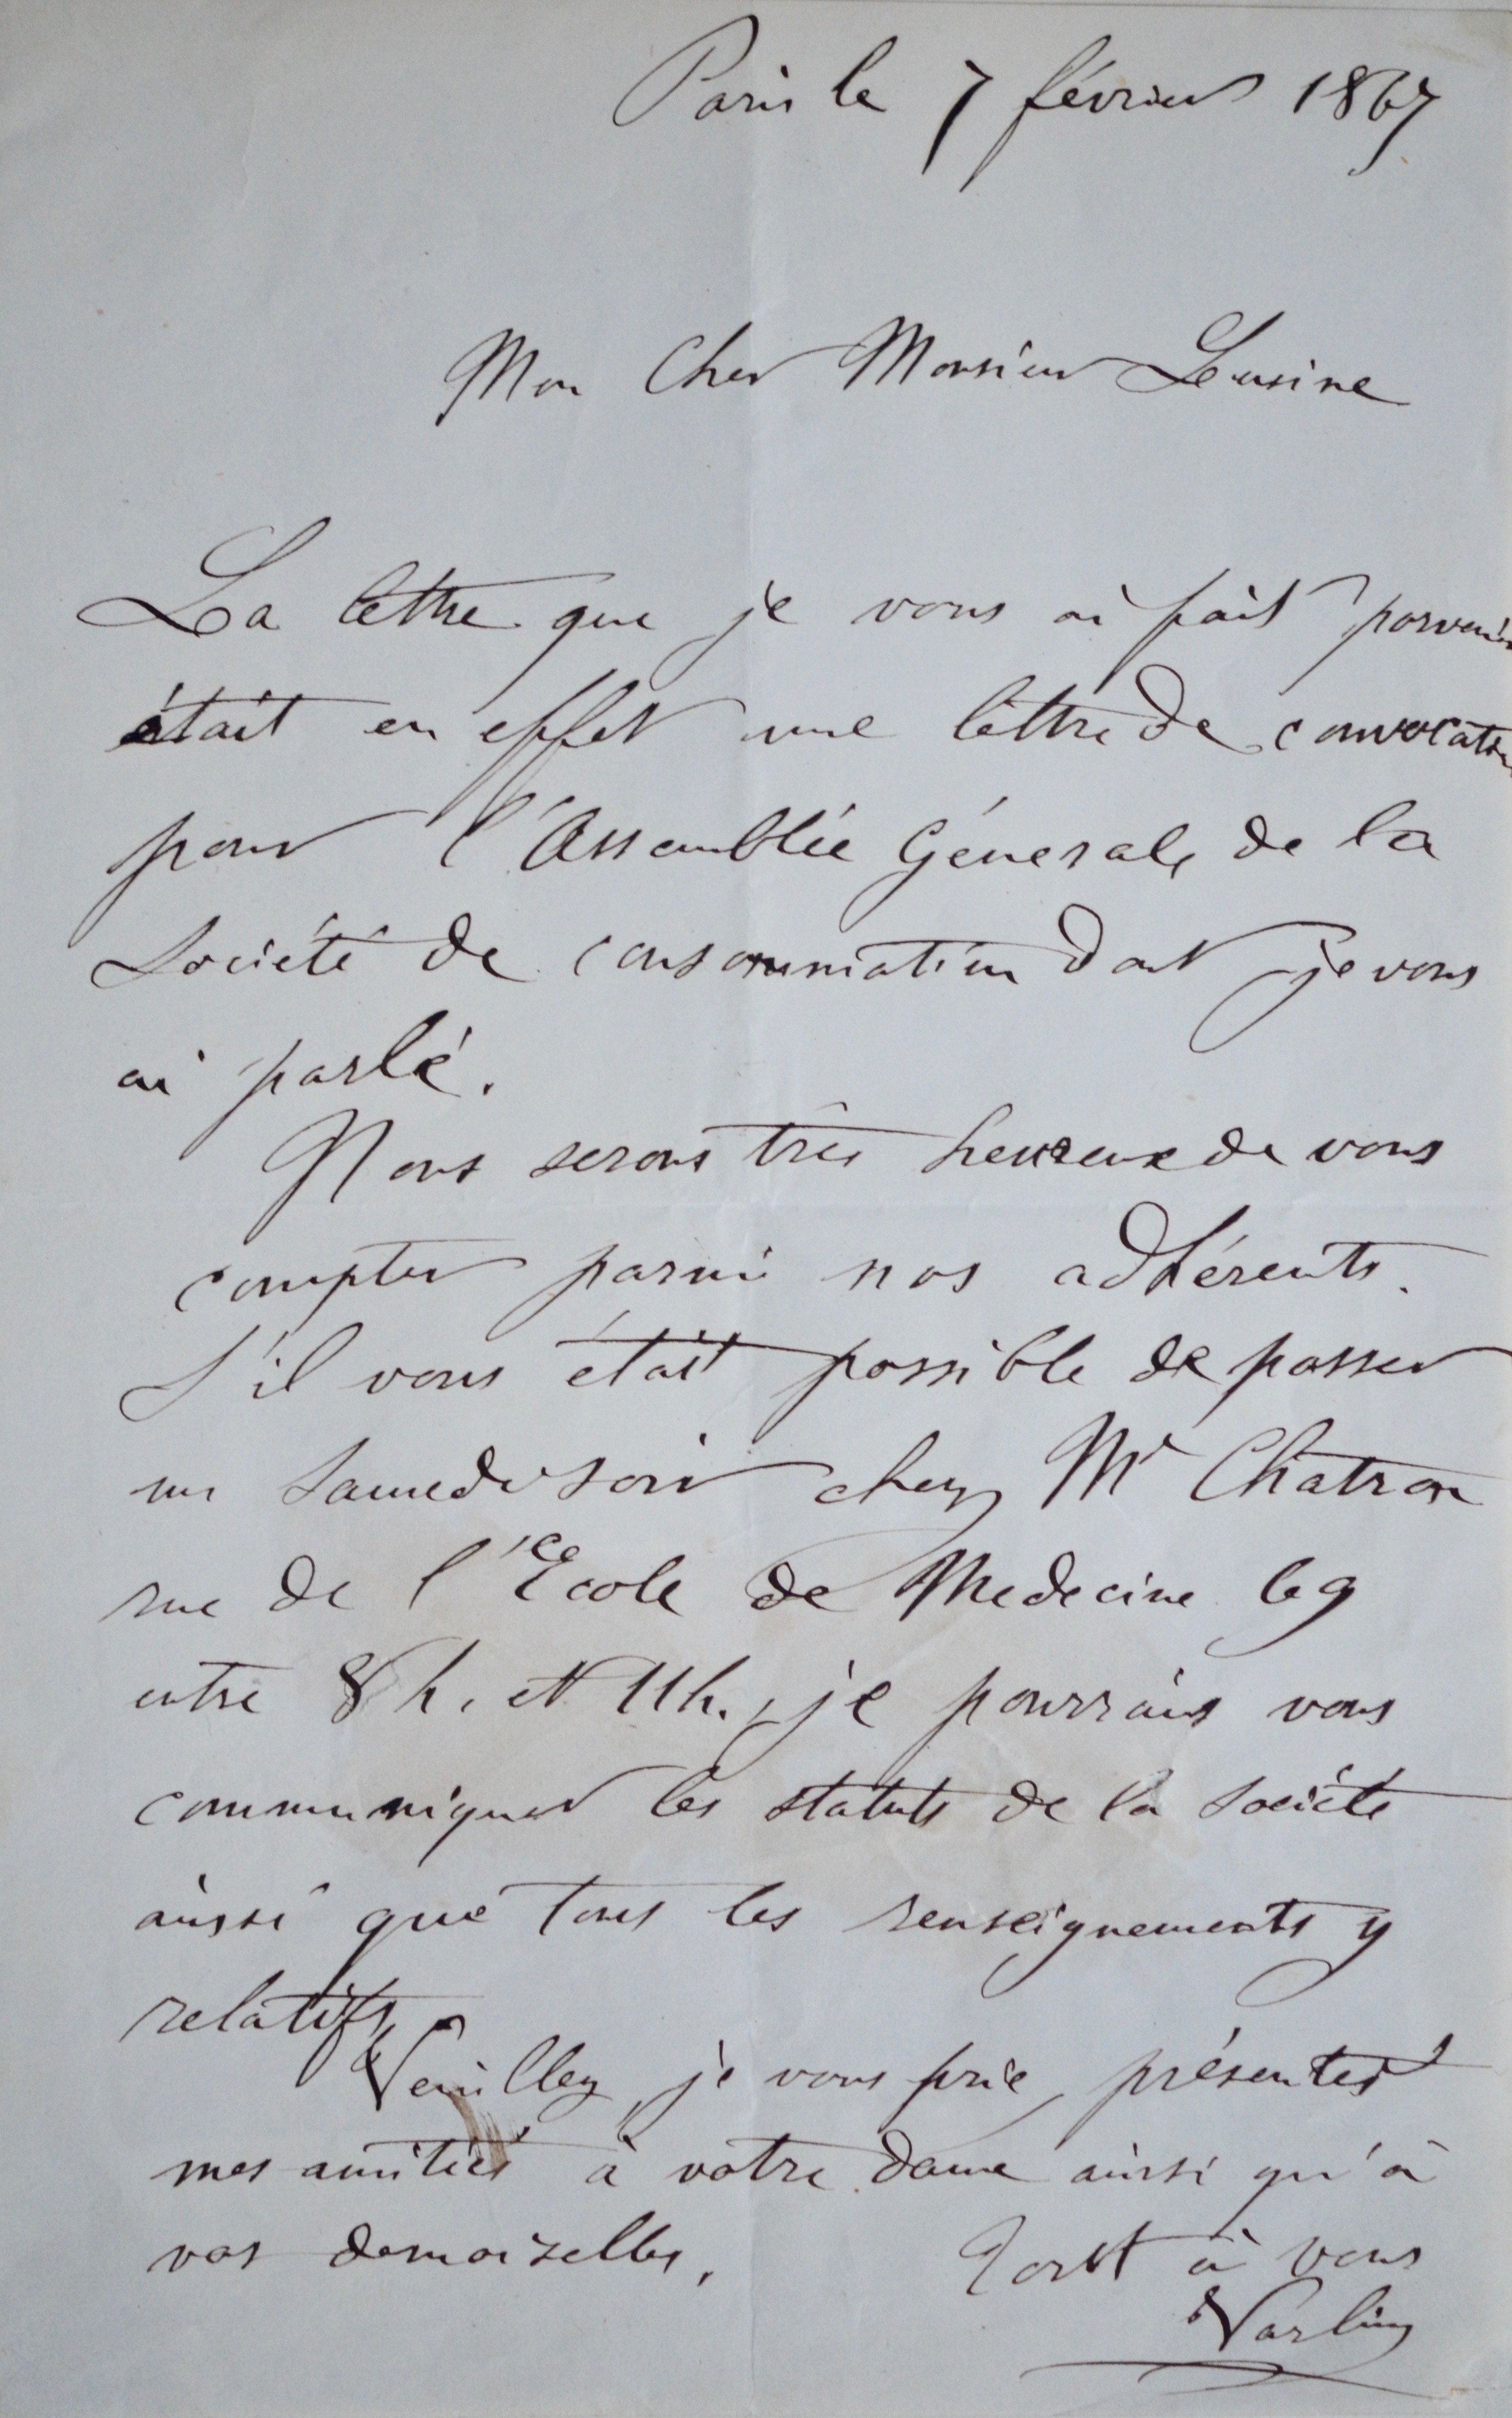 Paris le 7 février 1867
Mon Cher Monsieur Lensine
La lettre que je vous ai fait parvenir
était en effet une lettre de convocation
pour l'Assemblée Générale de la
société de consommation dont je vous
ai parlé.
Nous serons très heureux de vous
compter parmi nos adhérents.
S'il vous était possible de passer
un samedi soir chez Mr Chatron
rue de l'École de Medecine 69
entre 8 h. et 11 h., je pourrais vous
communiquer les statuts de la société
ainsi que tous les renseignements y
relatifs.
Veuillez, je vous prie, présenter
mes amitiés à votre dame ainsi qu'à
vos demoiselles.
Tout à vous
Varlin